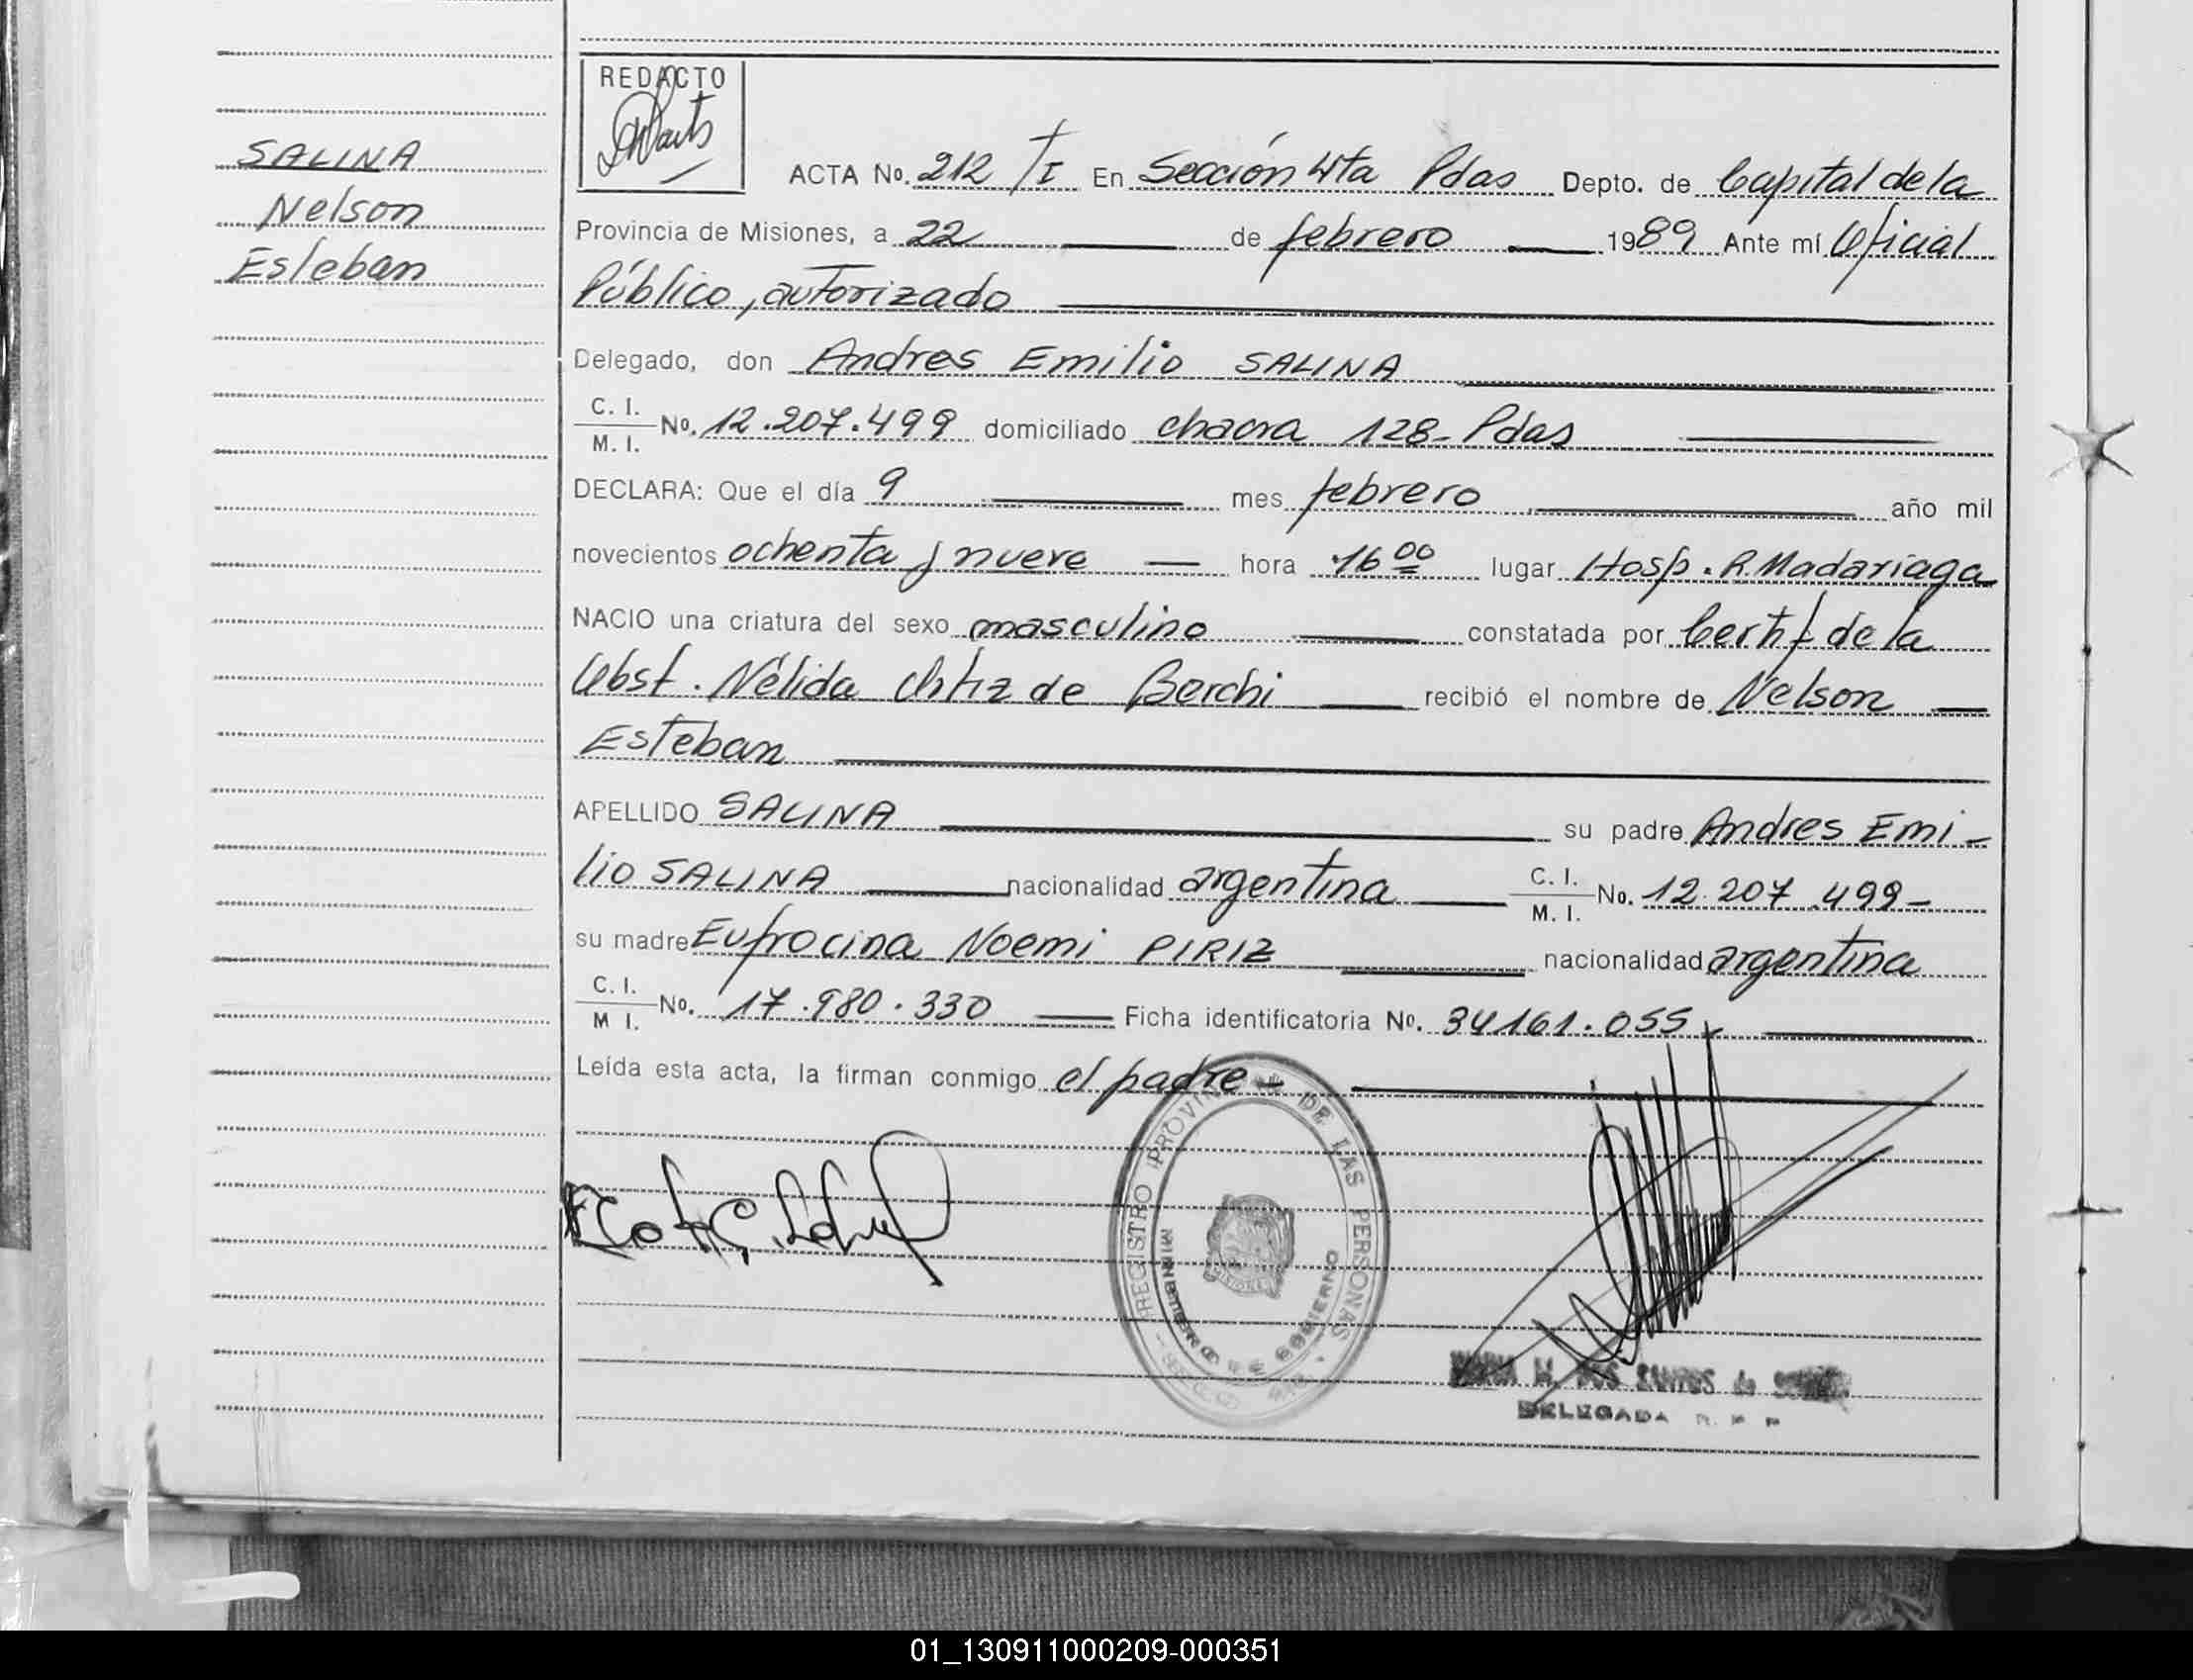 SALINA
Nelson
Esteban
REDACTO
ACTA No. 212 TI En Sección 4ta Pdas Depto. de Capital de la
Provincia de Misiones, a 22 de febrero 1989 Ante mí Oficial
Público, autorizado
Delegado, don Andres Emilio SALINA
C. I.
M. I. No. 12.207.499 domiciliado chacra 128- Pdas
DECLARA: Que el día 9 mes febrero año mil
novecientos ochenta y nueve hora 16 00 lugar Hosp. R. Madariaga
NACIO una criatura del sexo masculino constatada por Certif de la
Obst. Nélida Ortiz de Berchi recibió el nombre de Nelson
Esteban
APELLIDO SALINA su padre Andres Emi-
lio SALINA nacionalidad argentina C. I.
M. I. No. 12.207.499-
su madre Eufrocina Noemi PIRIZ nacionalidad argentina
C. I.
M I. No. 17.980.330 Ficha identificatoria No. 34161.055
Leída esta acta, la firman conmigo el padre-
REGISTRO PROVINCIAL DE LAS PERSONAS
MINISTERIO DE GOBIERNO
MISIONES
M. DOS SANTOS de
DELEGADA R. P. P
01_130911000209-000351